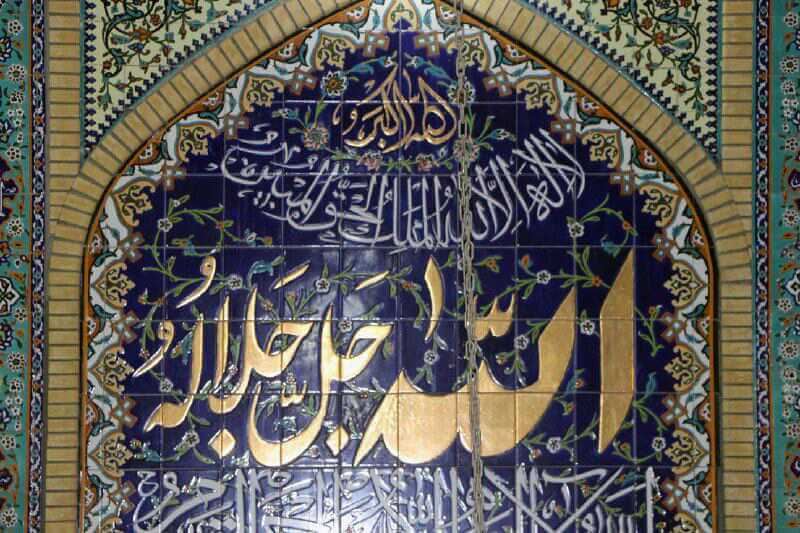 الله اکبر
لا إله إلا الله الملك الحق المبين
الله جل جلاله